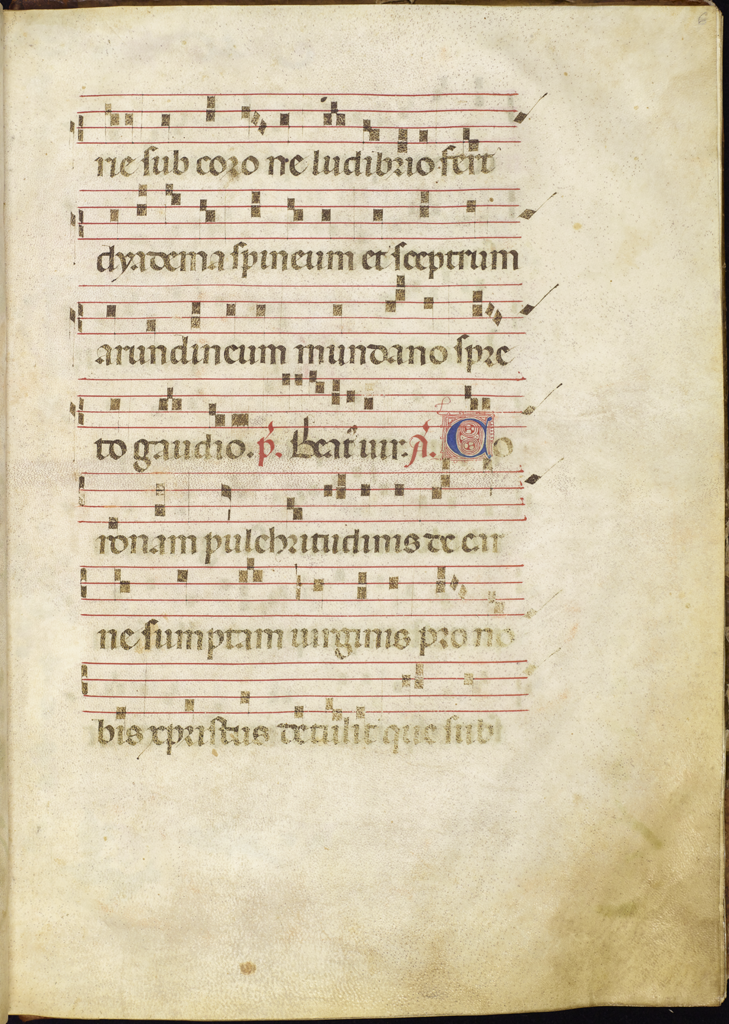 6
ne sub corone ludibrio fert
dyadema spineum et sceptrum
arundineum mundano spre
to gaudio. p̄. Beat᷒ uir. A. Co
ronam pulchritudinis de car
ne sumptam uirginis pro no
bis xpristus detulit que subi